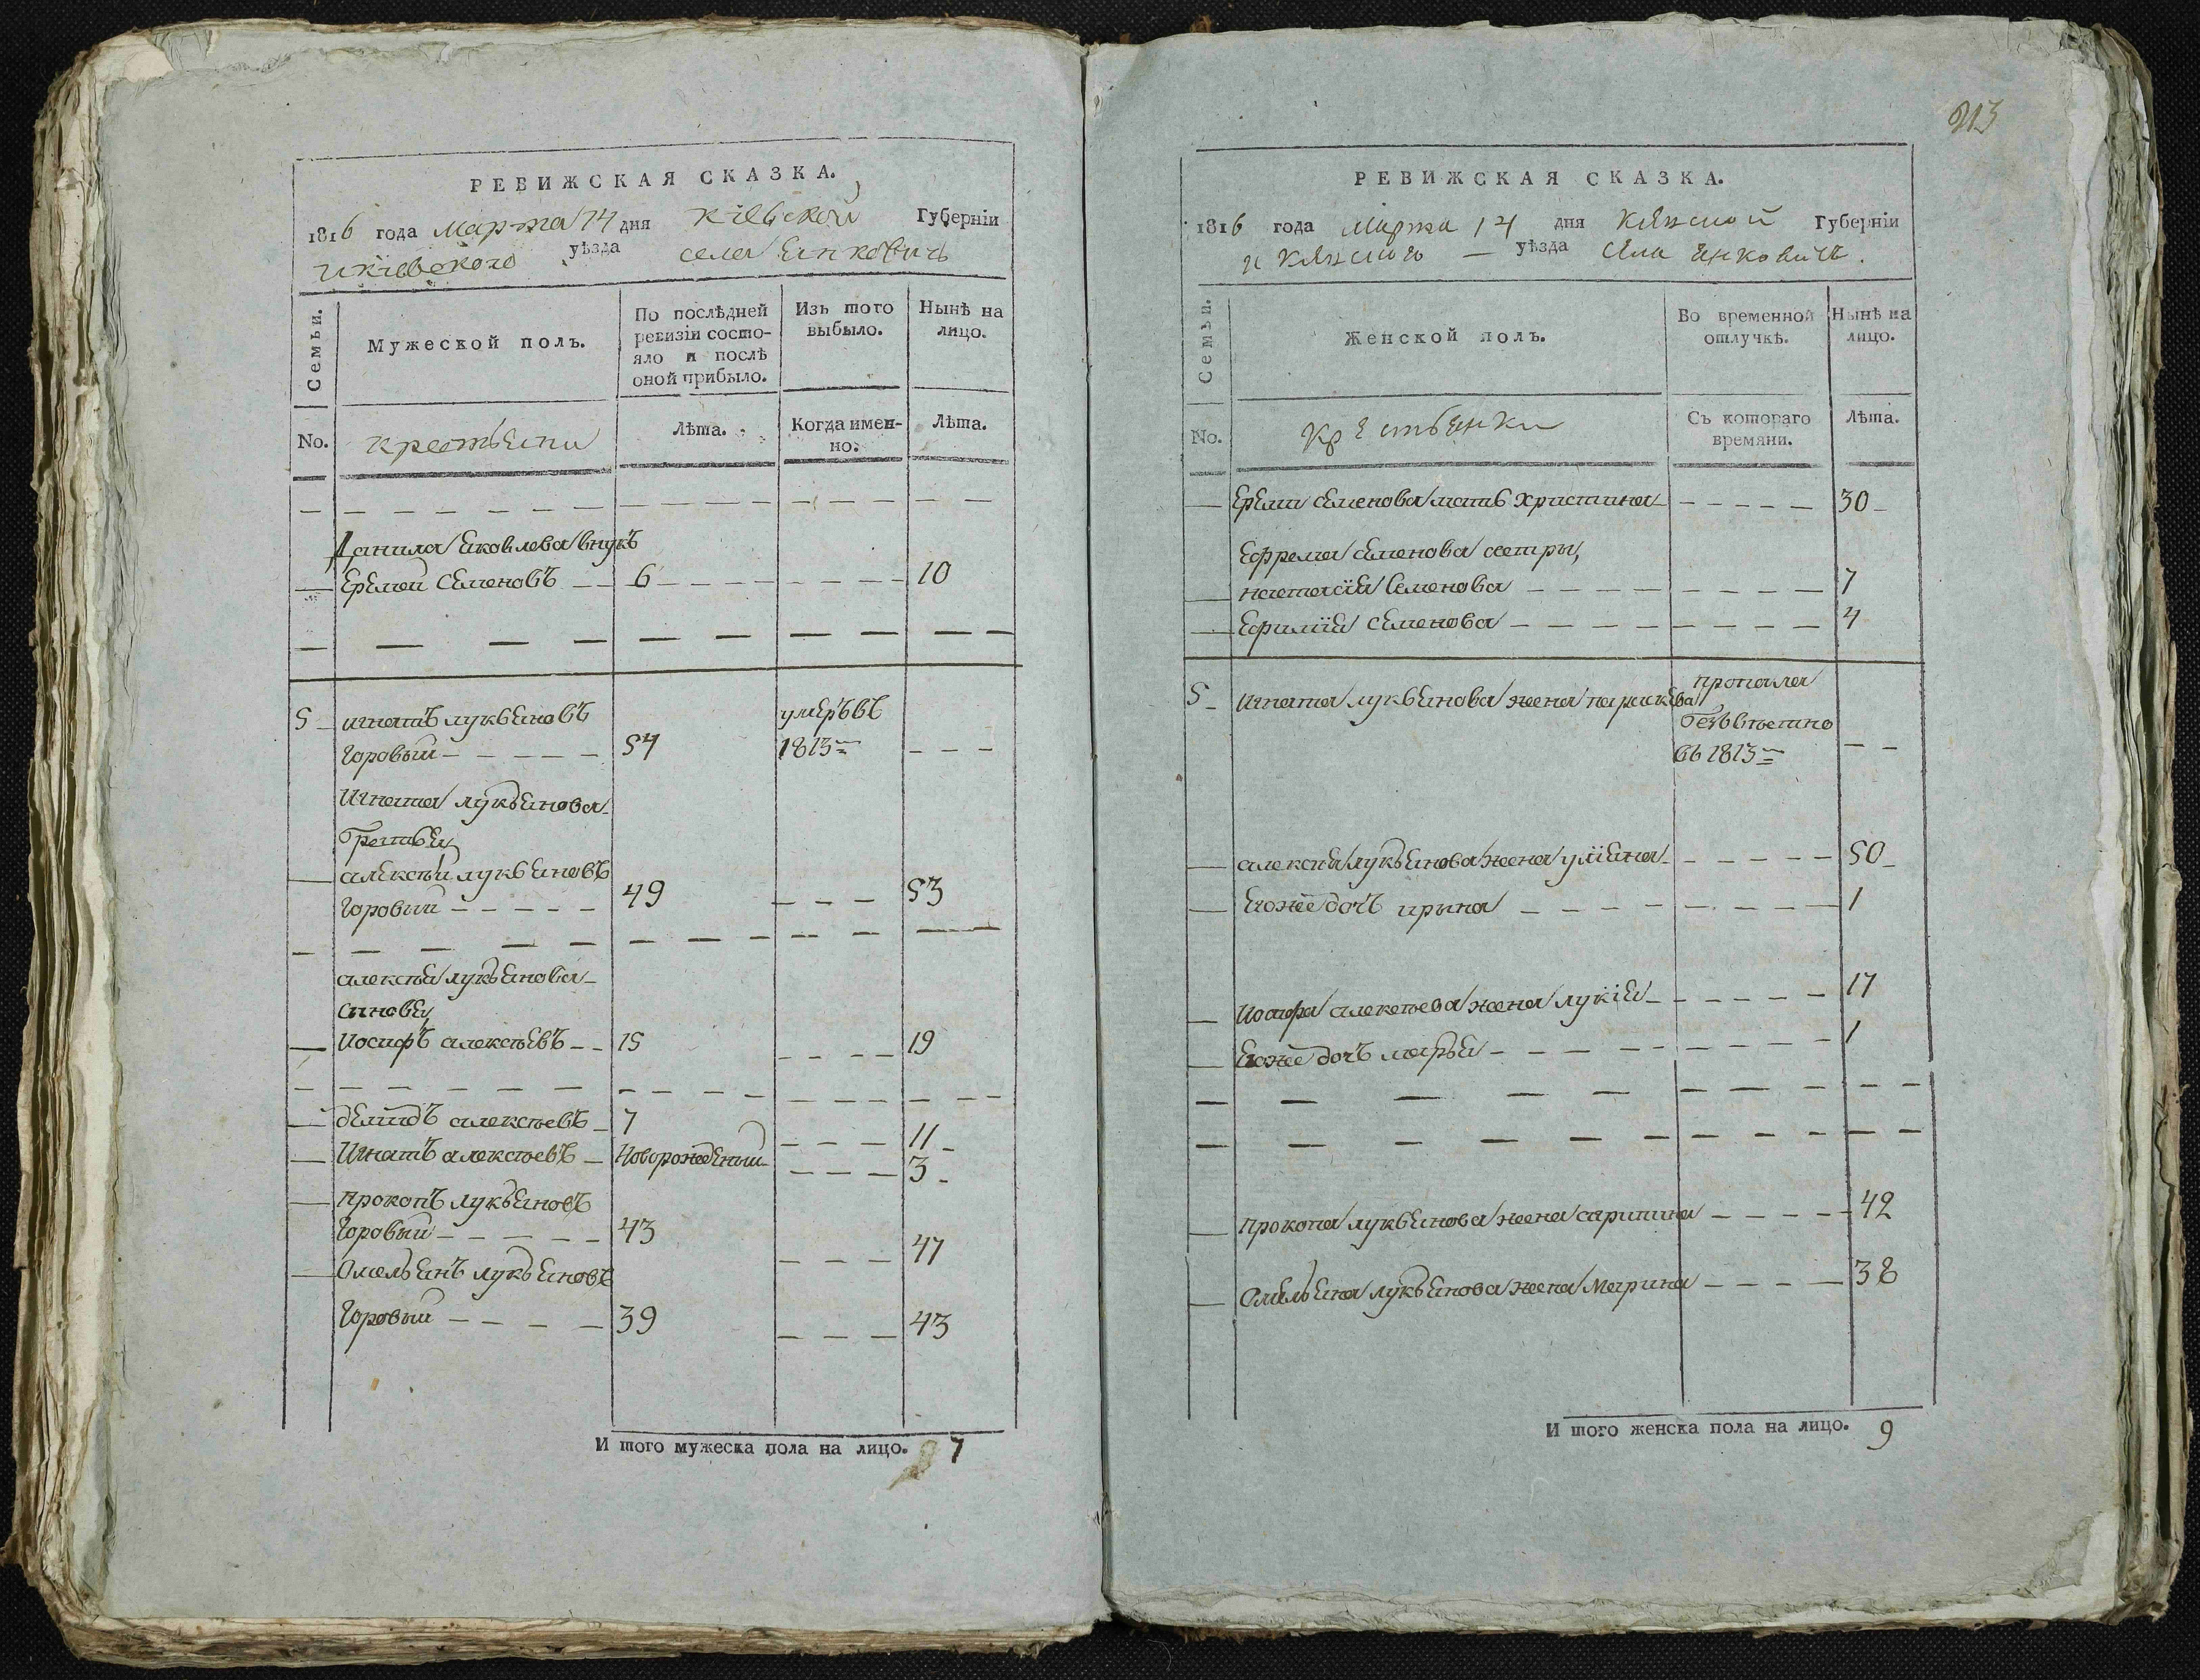 РЕВИЖСКАЯ СКАЗКА.
1816 года Марта 14 дня Кіевской Губерніи
Икіевского уѣзда села Янковичъ
Семьи.
Мужеской полъ.
По послѣдней
ревизіи состо-
яло и послѣ
оной прибыло.
Изъ того
выбыло.
Нынѣ на
лицо.
No.
крестьяни
Лѣта.
Когда имен-
но.
Лѣта.
Данила Яковлева внукъ
Еремѣй Семеновъ 6 10
5 игнатъ лукьяновъ умеръ въ
Горовый 54 1813
Игната лукьянова
братья
алексѣй лукьяновъ
Горовый 49 53
алексѣя лукьянова
сыновя
Иосифъ алексѣевъ 15 19
демидъ алексѣевъ 7 11
Игнатъ алексѣевъ Новорожденый 3
прокопъ лукьяновъ
Горовый 43 47
Омельянъ лукьяновъ
Горовый 39 43
И того мужеска пола на лицо. 7
213
РЕВИЖСКАЯ СКАЗКА.
1816 года Марта 14 дня Кіевской Губерніи
и Кіевского уѣзда села Янковичъ.
Семьи.
Женской полъ.
Во временной
отлучкѣ.
Нынѣ на
лицо.
No.
Крестьянки
Съ котораго
времяни.
Лѣта.
Еремы Семенова мать Христина 30
Ефрема Семенова сестры,
настасія Семенова 7
Ефимія Семенова 4
5 Игната лукьянова жена параскева пропала
безвѣстно
въ 1813
алексѣя лукьянова жена уліяна 50
Еюже дочъ ирына 1
Иосифа алексѣева жена лукія 17
Еюже дочъ марья 1
прокопа лукьянова жена 42
Омельяна лукьянова жена Марина 38
И того женска пола на лицо. 9